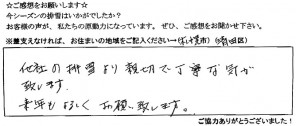 ☆ご感想をお願いします☆
今シーズンの排雪はいかがでしたか?
お客様の声が、私たちの原動力になっています。ぜひ、ご感想をお聞かせ下さい。
※差支えなければ、お住まいの地域をご記入ください→(札幌市)(清田区)
他社の排雪より親切で丁寧な気が
致します。
来年もよろしくお願い致します。
ご協力ありがとうございました!